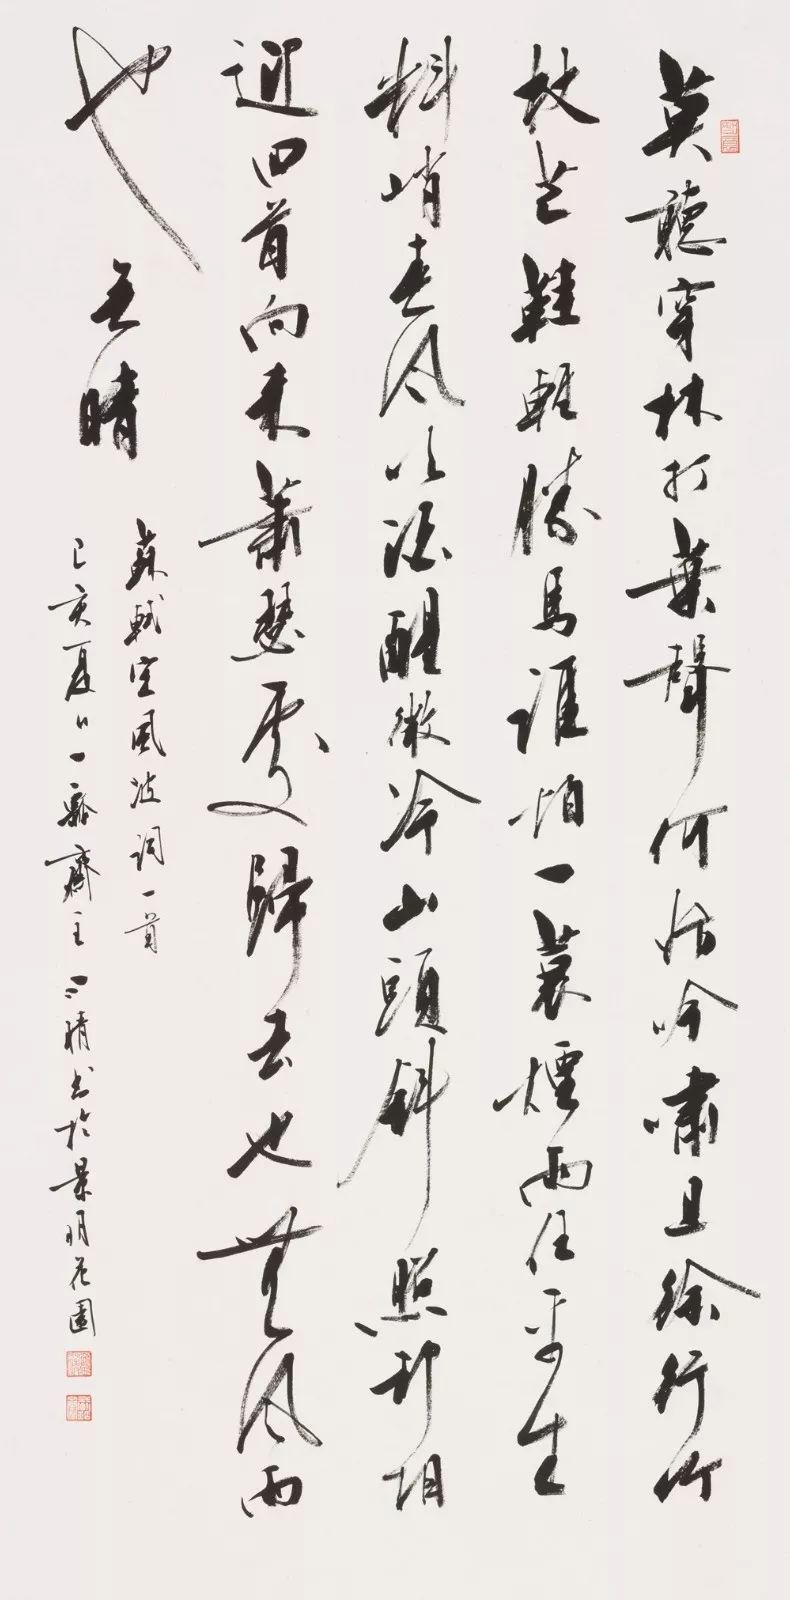 莫聽穿林打葉聲何妨吟嘯且徐行竹
杖芒鞋輕勝馬誰怕一蓑煙雨任平生
料峭春风吹酒醒微冷山頭斜照却相
迎回首向来蕭瑟處歸去也無风雨
也无晴
蘇軾定風波詞一首
己亥夏日一齋主晴书於景明花園